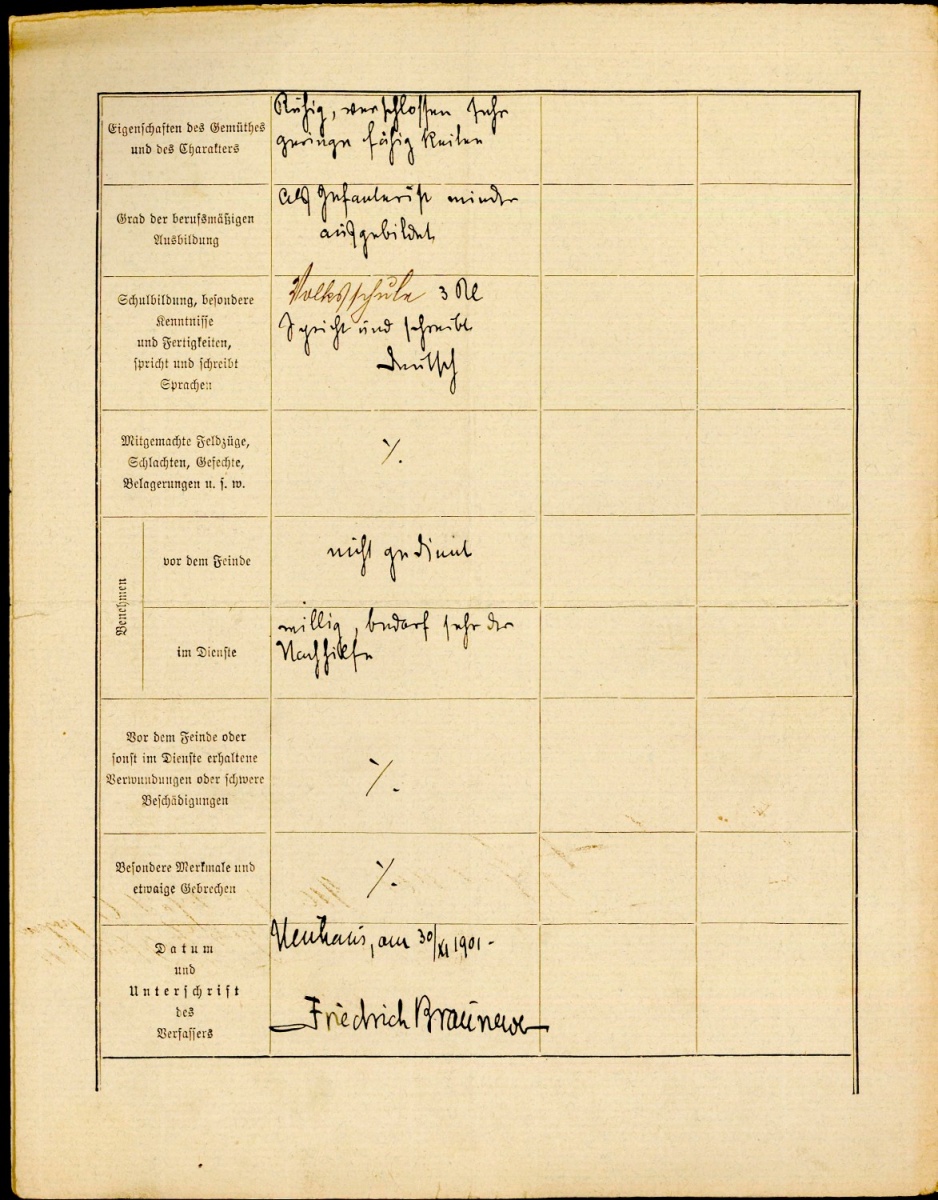 Eigenschaften des Gemüthes
und des Charakters
Ruhig, verschlossen sehr
geringe fähigkeiten
Grad der berufsmäßigen
Ausbildung
als Infanterist minder
ausgebildet
Schulbildung, besondere
Kenntnisse
und Fertigkeiten,
spricht und schreibt
Sprachen
Volksschule 3 Kl
Spricht und schreibt
deutsch
Mitgemachte Feldzüge,
Schlachten, Gefechte,
Belagerungen u. s. w.
%.
Benehmen
vor dem Feinde
nicht gedient
im Dienste
willig, bedarf sehr der
Nachhilfe
Vor dem Feinde oder
sonst im Dienste erhaltene
Verwundungen oder schwere
Beschädigungen
%.
Besondere Merkmale und
etwaige Gebrechen
%.
Datum
und
Unterschrift
des
Verfassers
Neuhaus, am 30/XI 1901 -
Friedrich